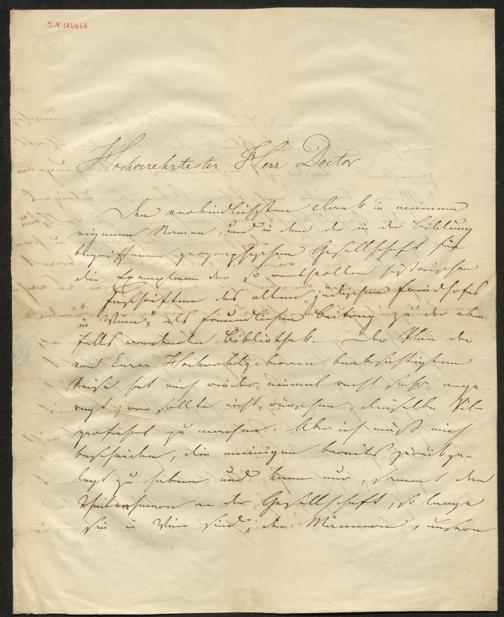 I.N. 182464
Hochverehrtester Herr Doctor
Den verbindlichsten Dank in meinem
eigenen Namen, und in dem der in der Bildung
begriffenen geographischen Gesellschaft für
die Exemplare der so werthvollen historischen
Inschriften des alten jüdischen Friedhofes
in Wien, als freundlichen Beitrag zu der eben
falls werdenden Bibliothek. Der Plan der
von Euer Hochwohlgeboren beabsichtigten
Reise hat mich wieder einmal recht sehr ange
regt, wer sollte nicht wünschen, dieselbe Pil-
gerfahrt zu machen. Aber ich muß mich
bescheiden, die meinigen bereits zurückge-
legt zu haben, und kann nur, sammt den
Theilnehmern an der Gesellschaft, so lange
sie in Wien sind, den Männern, unsern